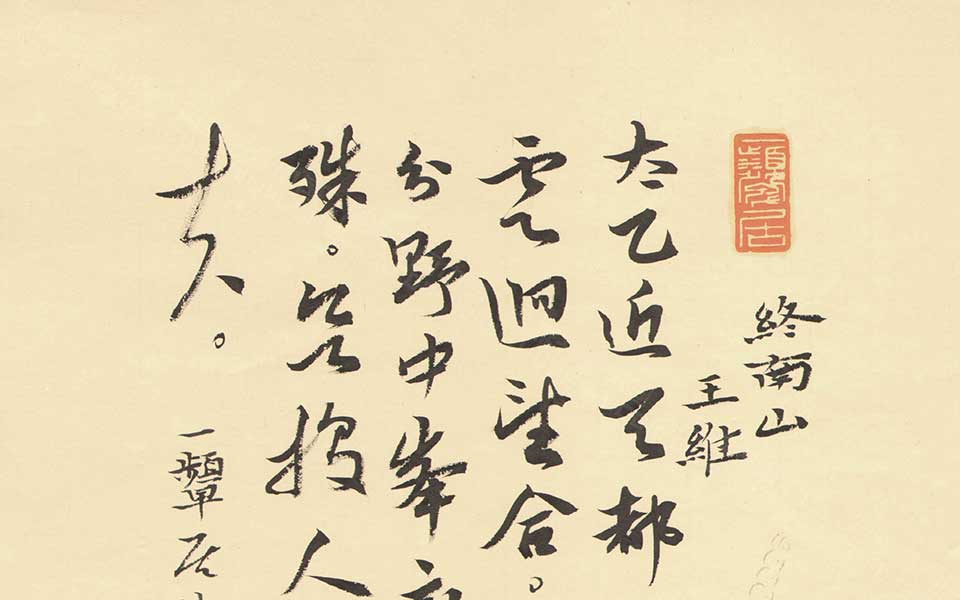 終南山
王維
太乙近天都
雲迴望合。
分野中峯
殊。欲投人
夫。
一顰居